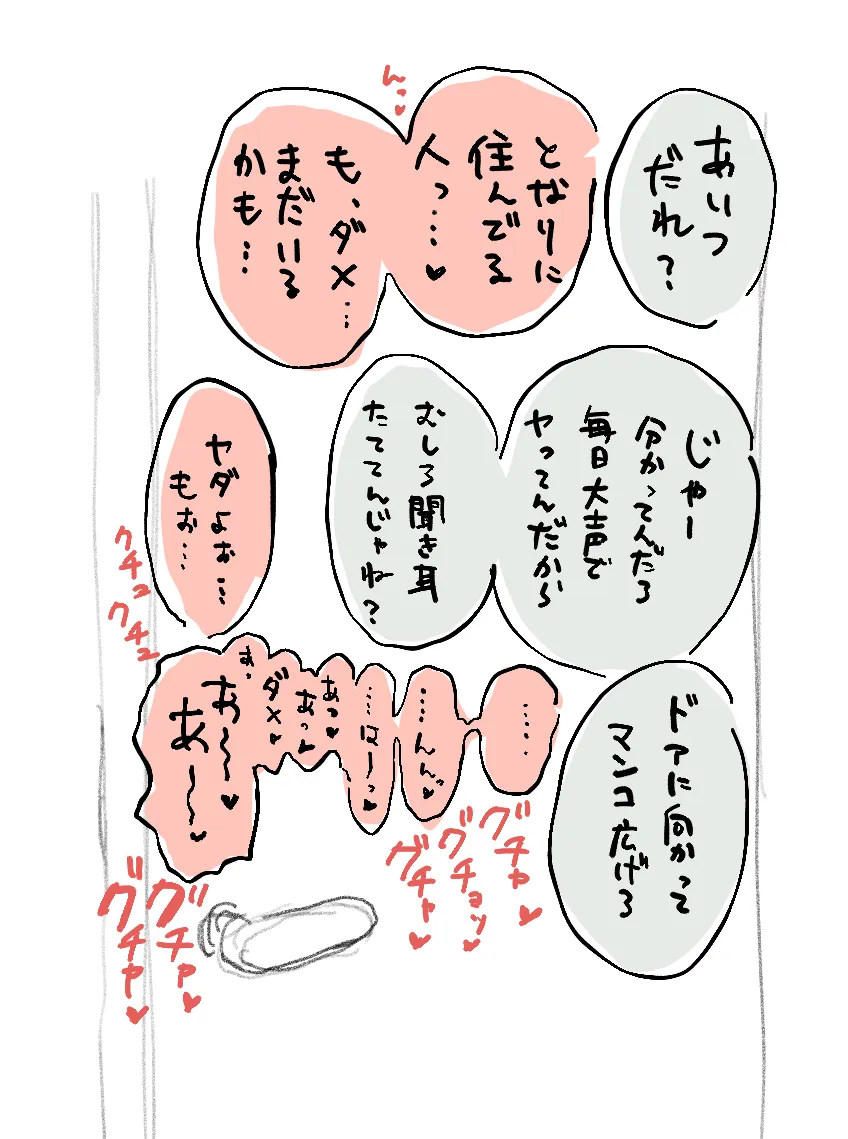 あいつ
だれ?
となりに
住んでる
人っ…♥
んっ♥
も、ダメ…
まだいる
かも…
じゃー
分かってんだろ
毎日大声で
ヤってんだから
むしろ聞き耳
たててんじゃね?
ヤダよぉ…
もぉ…
クチュ
クチュ
ドアに向かって
マンコ広げろ
……
…んんっ♥
…はーっ♥
あっ♥
あっ♥
ダメ♥
あっ
お〜〜♥
あ〜〜♥
グチャ♥
グチョッ♥
グチャ♥
グチャ♥
グチャ♥